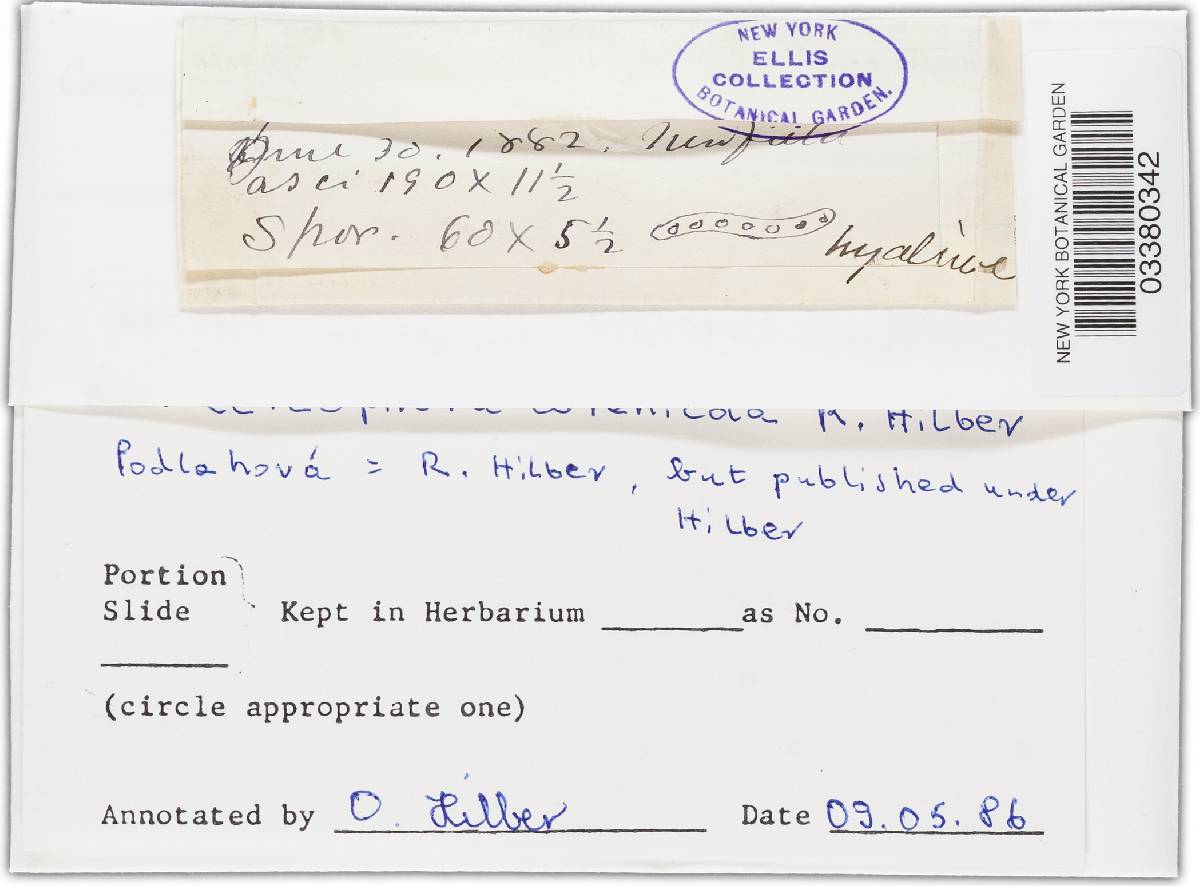 NEW YORK
ELLIS
COLLECTION
BOTANICAL GARDEN.
June 30. 1882. Newfield
asci 190 X 11 1/2
Spor. 60 X 5 1/2
hyaline
NEW YORK BOTANICAL GARDEN
03380342
R. Hilber
Podlahová = R. Hilber, but published under
Hilber
Portion
Slide Kept in Herbarium ______ as No. ______
(circle appropriate one)
Annotated by O. Hilber Date 09.05.86